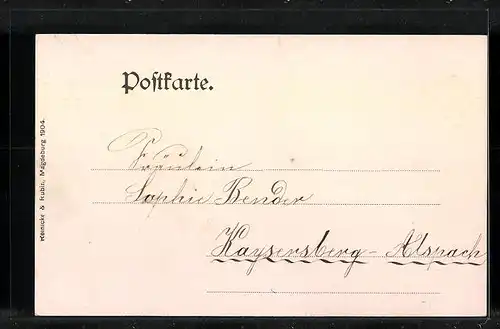 Postkarte.
Fräulein
Sophie Bender
Kaysersberg - Alspach
Reinicke & Rubin, Magdeburg 1904.